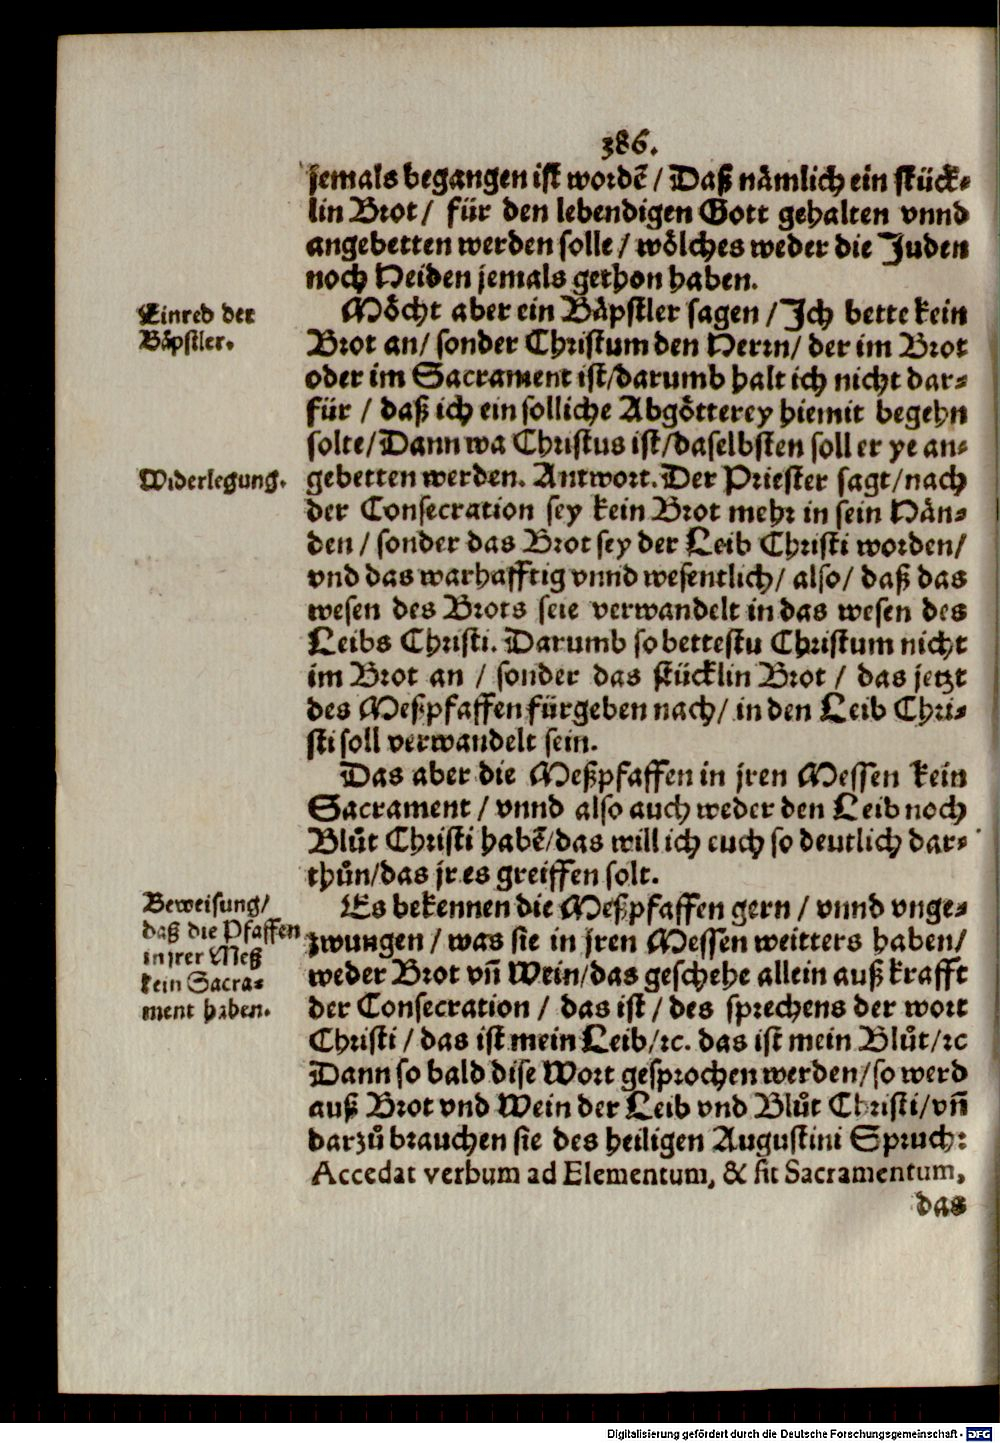 386.
jemals begangen ist wordẽ / Daß nämlich ein stück-
lin Brot / für den lebendigen Gott gehalten vnnd
angebetten werden solle / wölches weder die Juden
noch Heiden jemals gethon haben.
Einred der
Bäpstler.
Möcht aber ein Bäpstler sagen / Ich bette kein
Brot an / sonder Christum den Herrn / der im Brot
oder im Sacrament ist / darumb halt ich nicht dar-
für / daß ich ein solliche Abgötterey hiemit begehn
solte / Dann wa Christus ist / daselbsten soll er ye an-
Widerlegung.
gebetten werden. Antwort. Der Priester sagt / nach
der Consecration sey kein Brot mehr in sein Hän-
den / sonder das Brot sey der Leib Christi worden /
vnd das warhafftig vnnd wesentlich / also / daß das
wesen des Brots seie verwandelt in das wesen des
Leibs Christi. Darumb so bettestu Christum nicht
im Brot an / sonder das stücklin Brot / das jetzt
des Meßpfaffen fürgeben nach / in den Leib Chri-
sti soll verwandelt sein.
Das aber die Meßpfaffen in jren Messen kein
Sacrament / vnnd also auch weder den Leib noch
Blůt Christi habẽ / das will ich euch so deutlich dar-
thůn / das jr es greiffen solt.
Beweisung /
daß die Pfaffen
in jrer Meß
kein Sacra-
ment haben.
Es bekennen die Meßpfaffen gern / vnnd vnge-
zwungen / was sie in jren Messen weitters haben /
weder Brot vñ Wein / das geschehe allein auß krafft
der Consecration / das ist / des sprechens der wort
Christi / das ist mein Leib / ꝛc. das ist mein Blůt / ꝛc
Dann so bald dise Wort gesprochen werden / so werd
auß Brot vnd Wein der Leib vnd Blůt Christi / vñ
darzů brauchen sie des heiligen Augustini Spruch:
Accedat verbum ad Elementum, & fit Sacramentum,
das
Digitalisierung gefördert durch die Deutsche Forschungsgemeinschaft - DFG